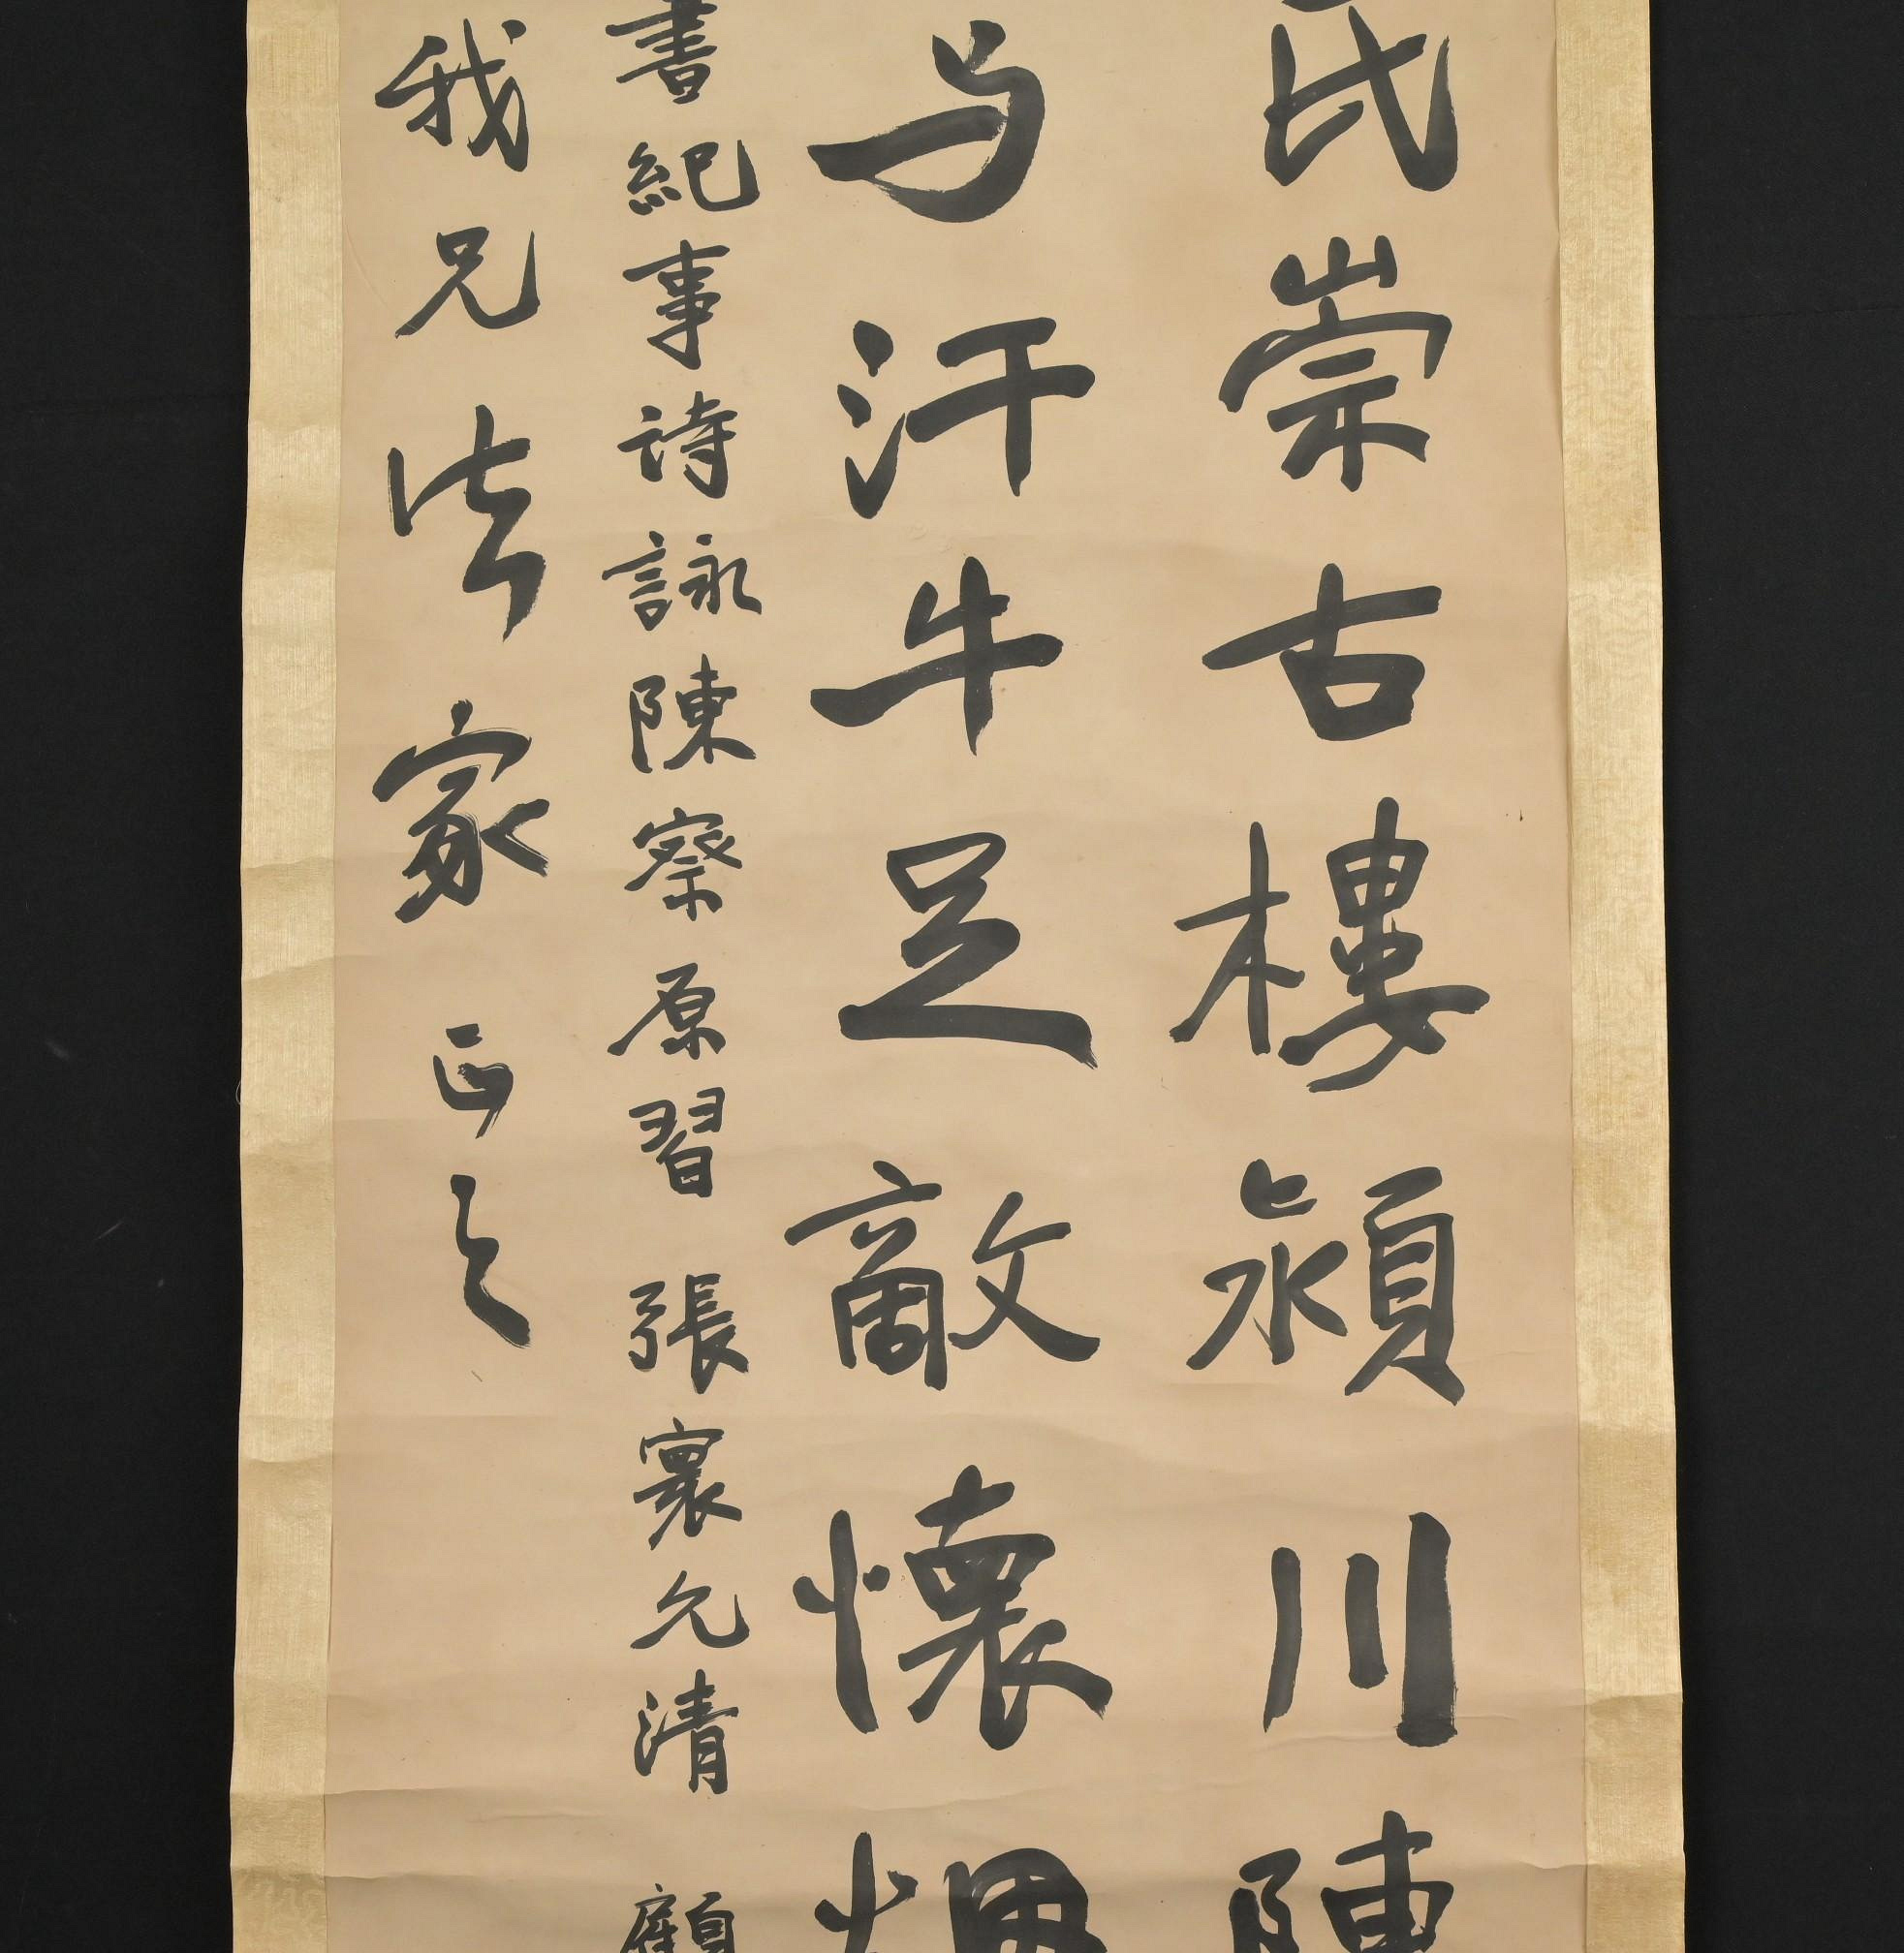 氏崇古樓潁川陳
与汗牛足敵懷
書紀事詩詠陳察原習 張寰允清 顧
我兄法家正之